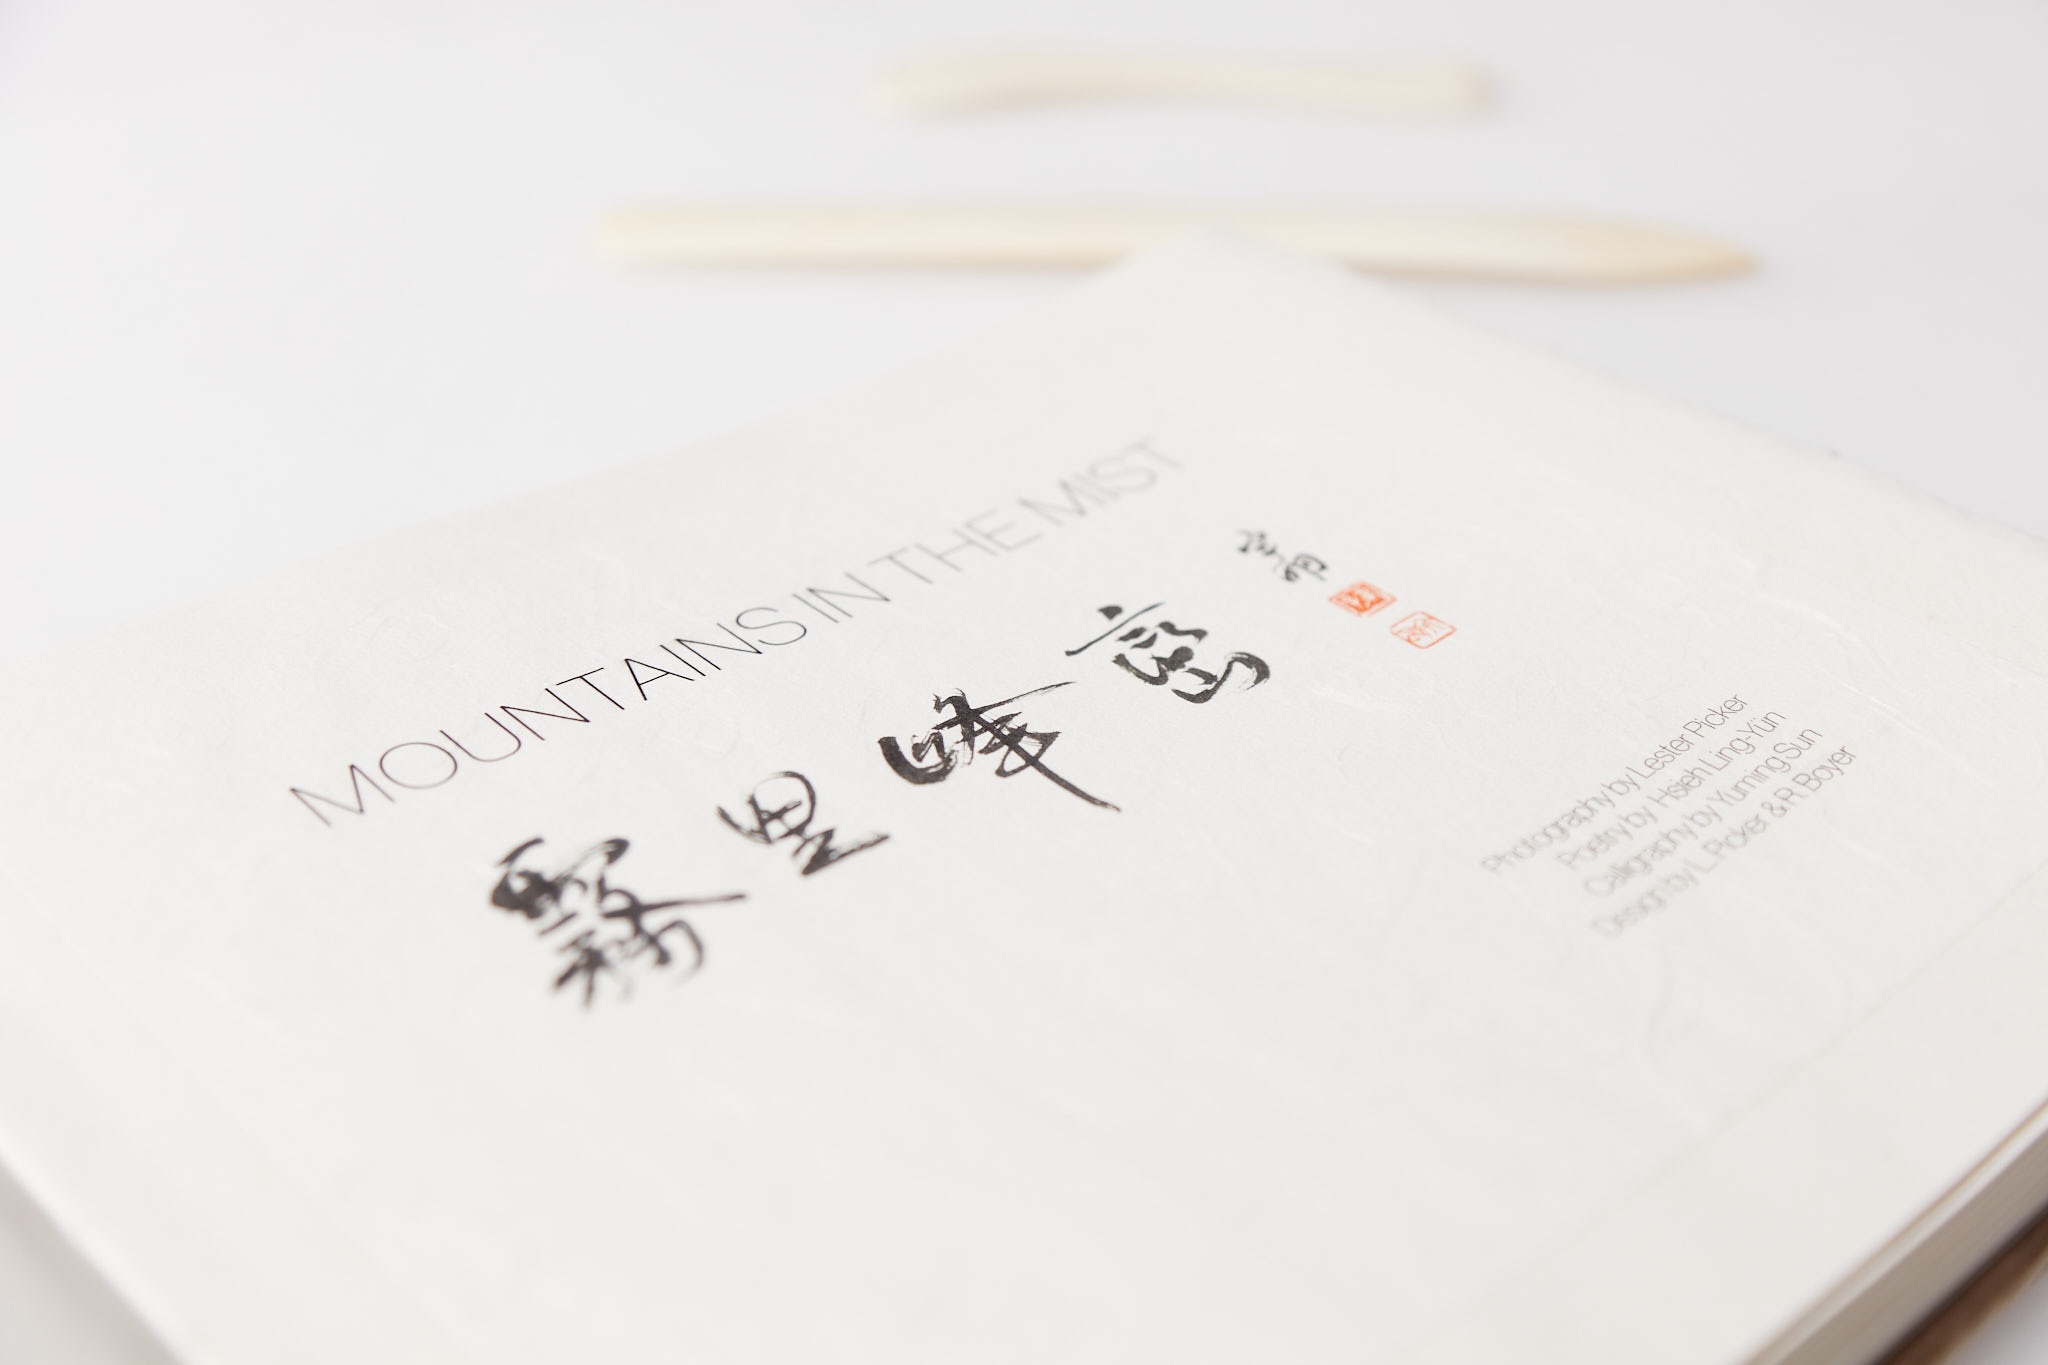 MOUNTAINS IN THE MIST
霧里峰巒
Photography by Lester Picker
Poetry by Hsieh Ling-Yün
Calligraphy by Yuming Sun
Design by L. Picker & R. Boyer